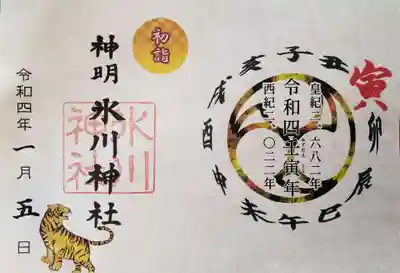 皇紀二六八二年
令和四壬寅年
西紀二〇二二年
子
丑
寅
卯
辰
巳
午
未
申
酉
戌
亥
初詣
神明氷川神社
氷川神社
令和四年一月五日